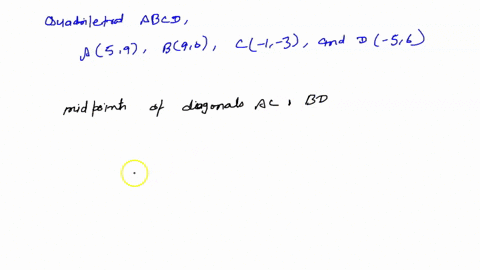 Quadrilateral ABCD,
A(5,9), B(9,0), C(-1,-3), and D(-5,6)
midpoints of diagonals AC, BD